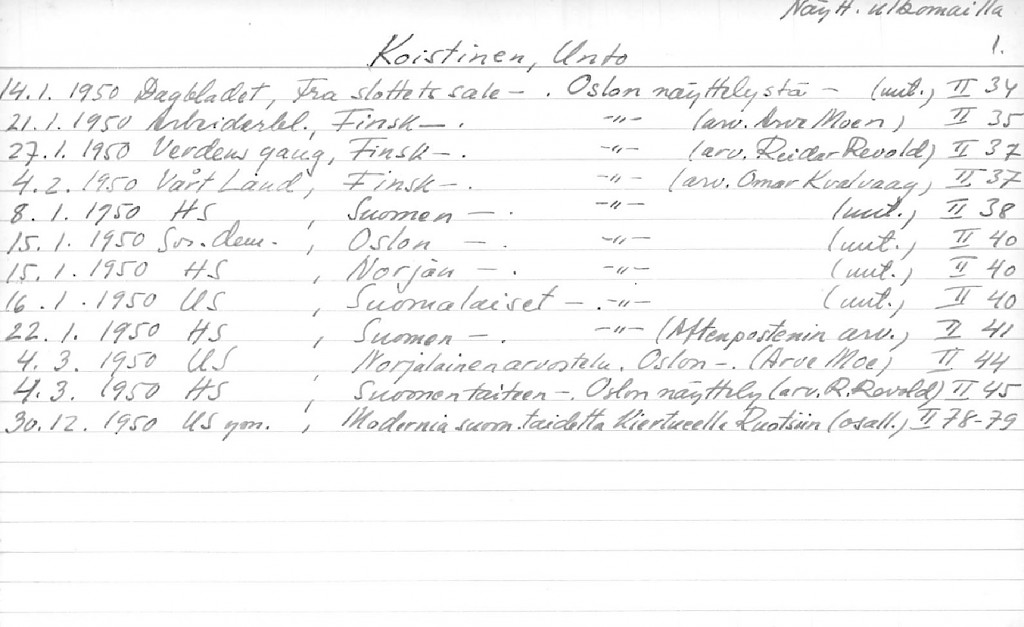 Näytt. ulkomailla
1.
Koistinen, Unto
14.1. 1950 Dagbladet, Fra slottets sale -. Oslon näyttelystä - (mit.) II 34
21.1. 1950 Arbeiderbl., Finsk -. -"- (arv. Arve Moen) II 35
27.1. 1950 Verdens gang, Finsk -. -"- (arv. Reidar Revold) II 37
4.2. 1950 Vårt Land, Finsk -. -"- (arv. Omar Kvalvaag) II 37
8.1. 1950 HS, Suomen -. -"- (mit.) II 38
15.1. 1950 Sos.dem., Oslon -. -"- (mit.) II 40
15.1. 1950 HS, Norjan -. -"- (mit.) II 40
16.1. 1950 US, Suomalaiset -. -"- (mit.) II 40
22.1. 1950 HS, Suomen -. -"- (Aftenpostenin arv.) II 41
4.3. 1950 US, Norjalainen arvostelu. Oslon -. (Arve Moe) II 44
4.3. 1950 HS, Suomen taiteen -. Oslon näyttely (arv. R. Revold) II 45
30.12. 1950 US ym., Modernia suom. taidetta kiertueella Ruotsiin (osall.) II 78-79